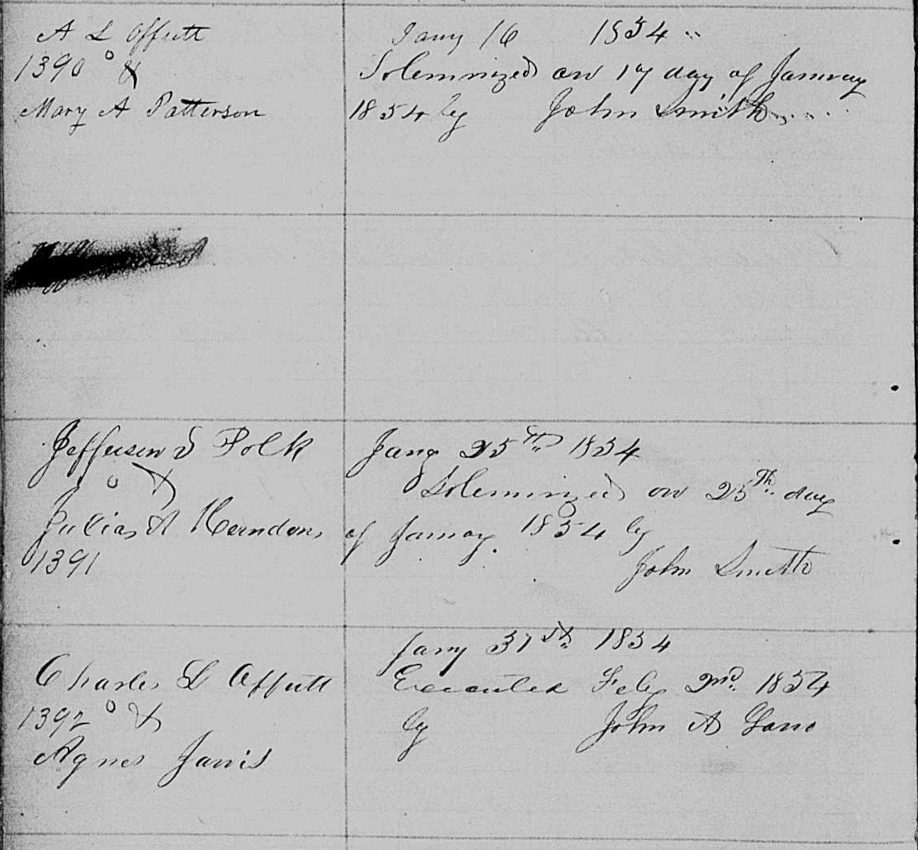 A L Offutt
1390 &
Mary A Patterson
Jany 16 1854
Solemnized on 17 day of January
1854 by John Smith
Jefferson S Polk
&
Julias A Herndon
1391
Jany 25th 1854
Solemnized on 25th day
of Januay 1854 by
John Smith
Charles L Offutt
1392 &
Agnes Jarvis
Jany 31st 1854
Executed Feby 2nd 1854
by John A